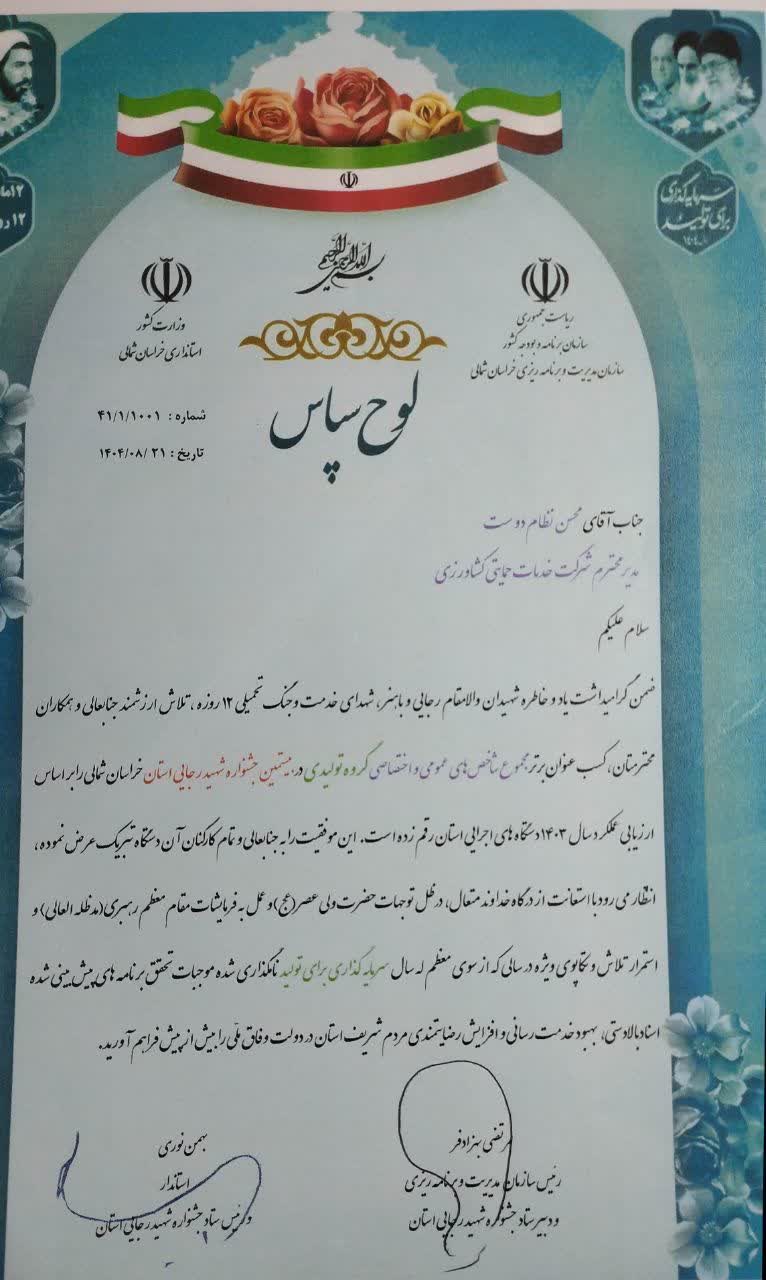 سرمایه گذاری
برای تولید
بسم الله الرحمن الرحیم
ریاست جمهوری
سازمان برنامه و بودجه کشور
سازمان مدیریت و برنامه ریزی خراسان شمالی
وزارت کشور
استانداری خراسان شمالی
لوح سپاس
شماره : ۴۱/۱/۱۰۰۱
تاریخ : ۱۴۰۴/۰۸/۲۱
جناب آقای محسن نظام دوست
مدیر محترم شرکت خدمات حمایتی کشاورزی
سلام علیکم
ضمن گرامیداشت یاد و خاطره شهیدان والامقام رجایی و باهنر، شهدای خدمت و جنگ تحمیلی ۱۲ روزه ، تلاش ارزشمند جنابعالی و همکاران
محترمتان، کسب عنوان برتر مجموع شاخص های عمومی و اختصاصی گروه تولیدی در بیستمین جشنواره شهید رجایی استان خراسان شمالی را بر اساس
ارزیابی عملکرد سال ۱۴۰۳ دستگاه های اجرایی استان رقم زده است. این موفقیت را به جنابعالی و تمام کارکنان آن دستگاه تبریک عرض نموده ،
انتظار می رود با استعانت از درگاه خداوند متعال، در ظل توجهات حضرت ولی عصر(عج) و عمل به فرمایشات مقام معظم رهبری(مدظله العالی) و
استمرار تلاش و تکاپوی ویژه در سالی که از سوی معظم له سال سرمایه گذاری برای تولید نامگذاری شده موجبات تحقق برنامه های پیش بینی شده
اسناد بالادستی، بهبود خدمت رسانی و افزایش رضایتمندی مردم شریف استان در دولت وفاق ملّی را بیش از پیش فراهم آورید.
مرتضی بهزادفر
رئیس سازمان مدیریت و برنامه ریزی
و دبیر ستاد جشنواره شهید رجایی استان
بهمن نوری
استاندار
و رئیس ستاد جشنواره شهید رجایی استان